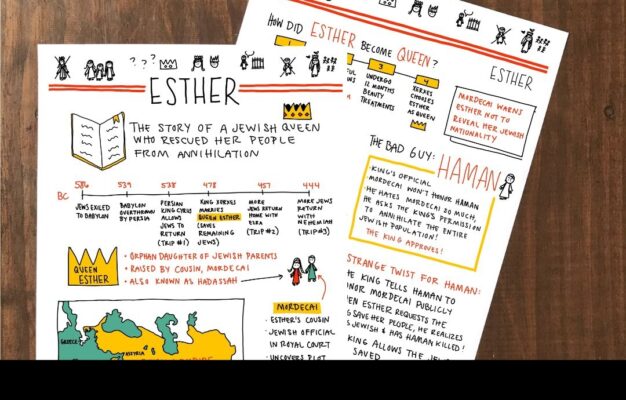 ? ? ?
ESTHER
THE STORY OF A JEWISH QUEEN
WHO RESCUED HER PEOPLE
FROM ANNIHILATION
BC
586
539
538
478
457
444
JEWS EXILED
TO BABYLON
BABYLON
OVERTHROWN
BY PERSIA
PERSIAN
KING CYRUS
ALLOWS
JEWS TO
RETURN
(TRIP #1)
KING XERXES
MARRIES
QUEEN ESTHER
(SAVES
REMAINING
JEWS)
MORE
JEWS RETURN
HOME WITH
EZRA
(TRIP #2)
MORE JEWS
RETURN
WITH
NEHEMIAH
(TRIP #3)
QUEEN
ESTHER
• ORPHAN DAUGHTER OF JEWISH PARENTS
• RAISED BY COUSIN, MORDECAI
• ALSO KNOWN AS HADASSAH
MORDECAI
• ESTHER'S COUSIN
• JEWISH OFFICIAL
IN ROYAL COURT
• UNCOVERS PLOT
GREECE
ASSYRIA
HOW DID ESTHER BECOME QUEEN?
3
4
UNDERGO
12 MONTHS
BEAUTY
TREATMENTS
XERXES
CHOOSES
ESTHER
AS QUEEN
ESTHER
MORDECAI WARNS
ESTHER NOT TO
REVEAL HER JEWISH
NATIONALITY
THE BAD GUY: HAMAN
• KING'S OFFICIAL
• MORDECAI WON'T HONOR HAMAN
• HE HATES MORDECAI SO MUCH,
HE ASKS THE KING'S PERMISSION
TO ANNIHILATE THE ENTIRE
JEWISH POPULATION!
THE KING APPROVES!
STRANGE TWIST FOR HAMAN:
KING TELLS HAMAN TO
MORDECAI PUBLICLY
ESTHER REQUESTS THE
SAVE HER PEOPLE, HE REALIZES
JEWISH & HAS HAMAN KILLED!
KING ALLOWS THE
SAVED